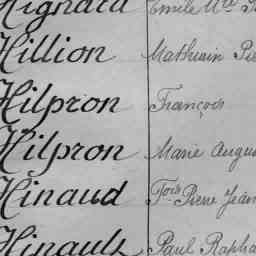 Hignard Emile
Hillion Mathurin
Hilpron François
Hilpron Marie
Hinaud Fois Pierre Jean
Hinault Paul